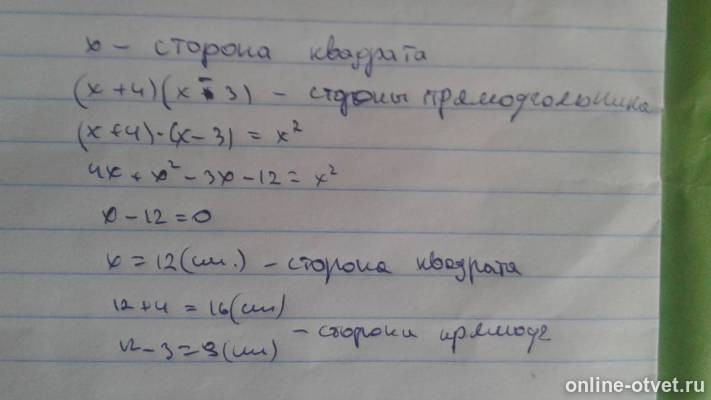 x – сторона квадрата
(x+4)(x-3) – стороны прямоугольника
(x+4)·(x-3) = x²
4x + x² - 3x - 12 = x²
x - 12 = 0
x = 12 (см.) – сторона квадрата
12+4 = 16 (см)
– стороны прямоуг
12-3 = 9 (см)
online-otvet.ru